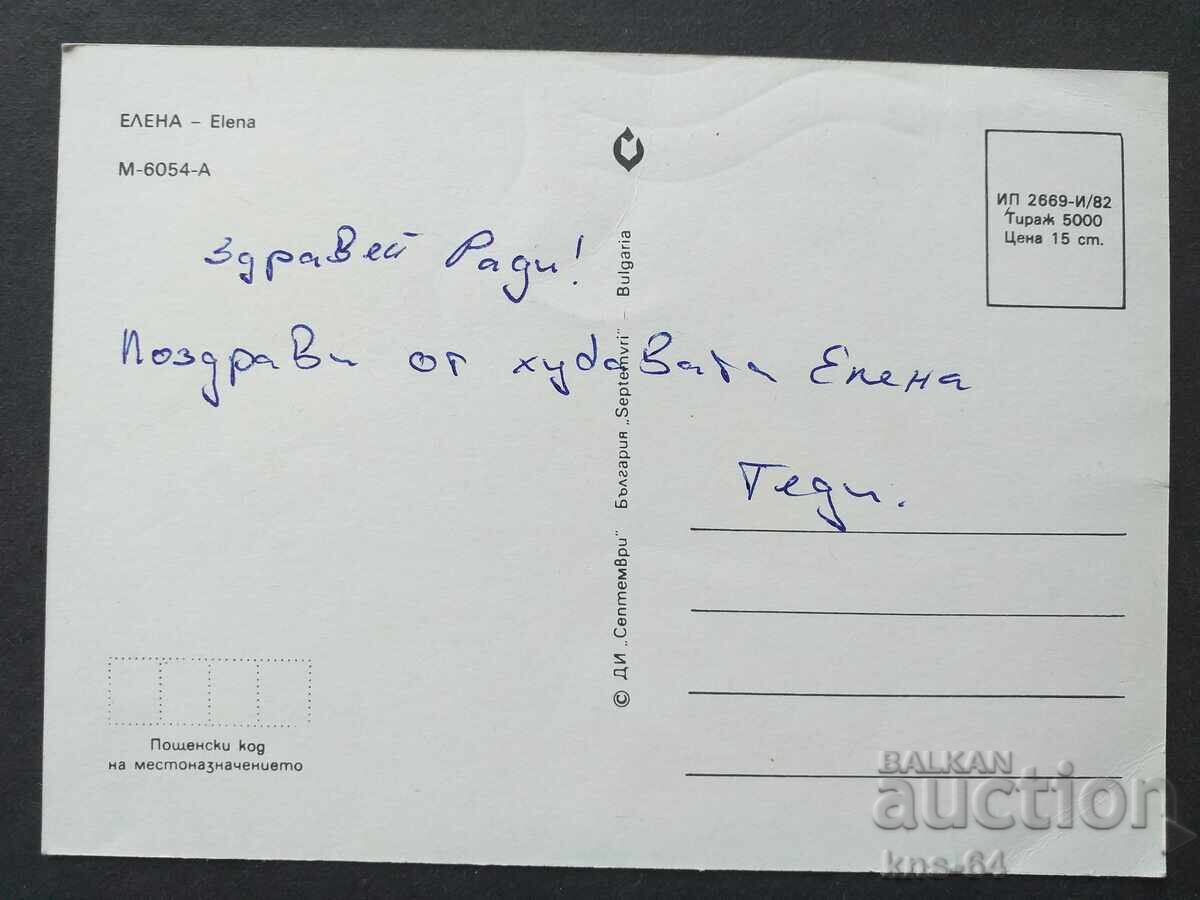 ЕЛЕНА – Elena
М-6054-А
ИП 2669-И/82
Тираж 5000
Цена 15 ст.
Здравей Ради!
Поздрави от хубавата Елена
Теди.
© ДИ „Септември" България „Septemvri" – Bulgaria
Пощенски код
на местоназначението
BALKAN
auction
kns-64